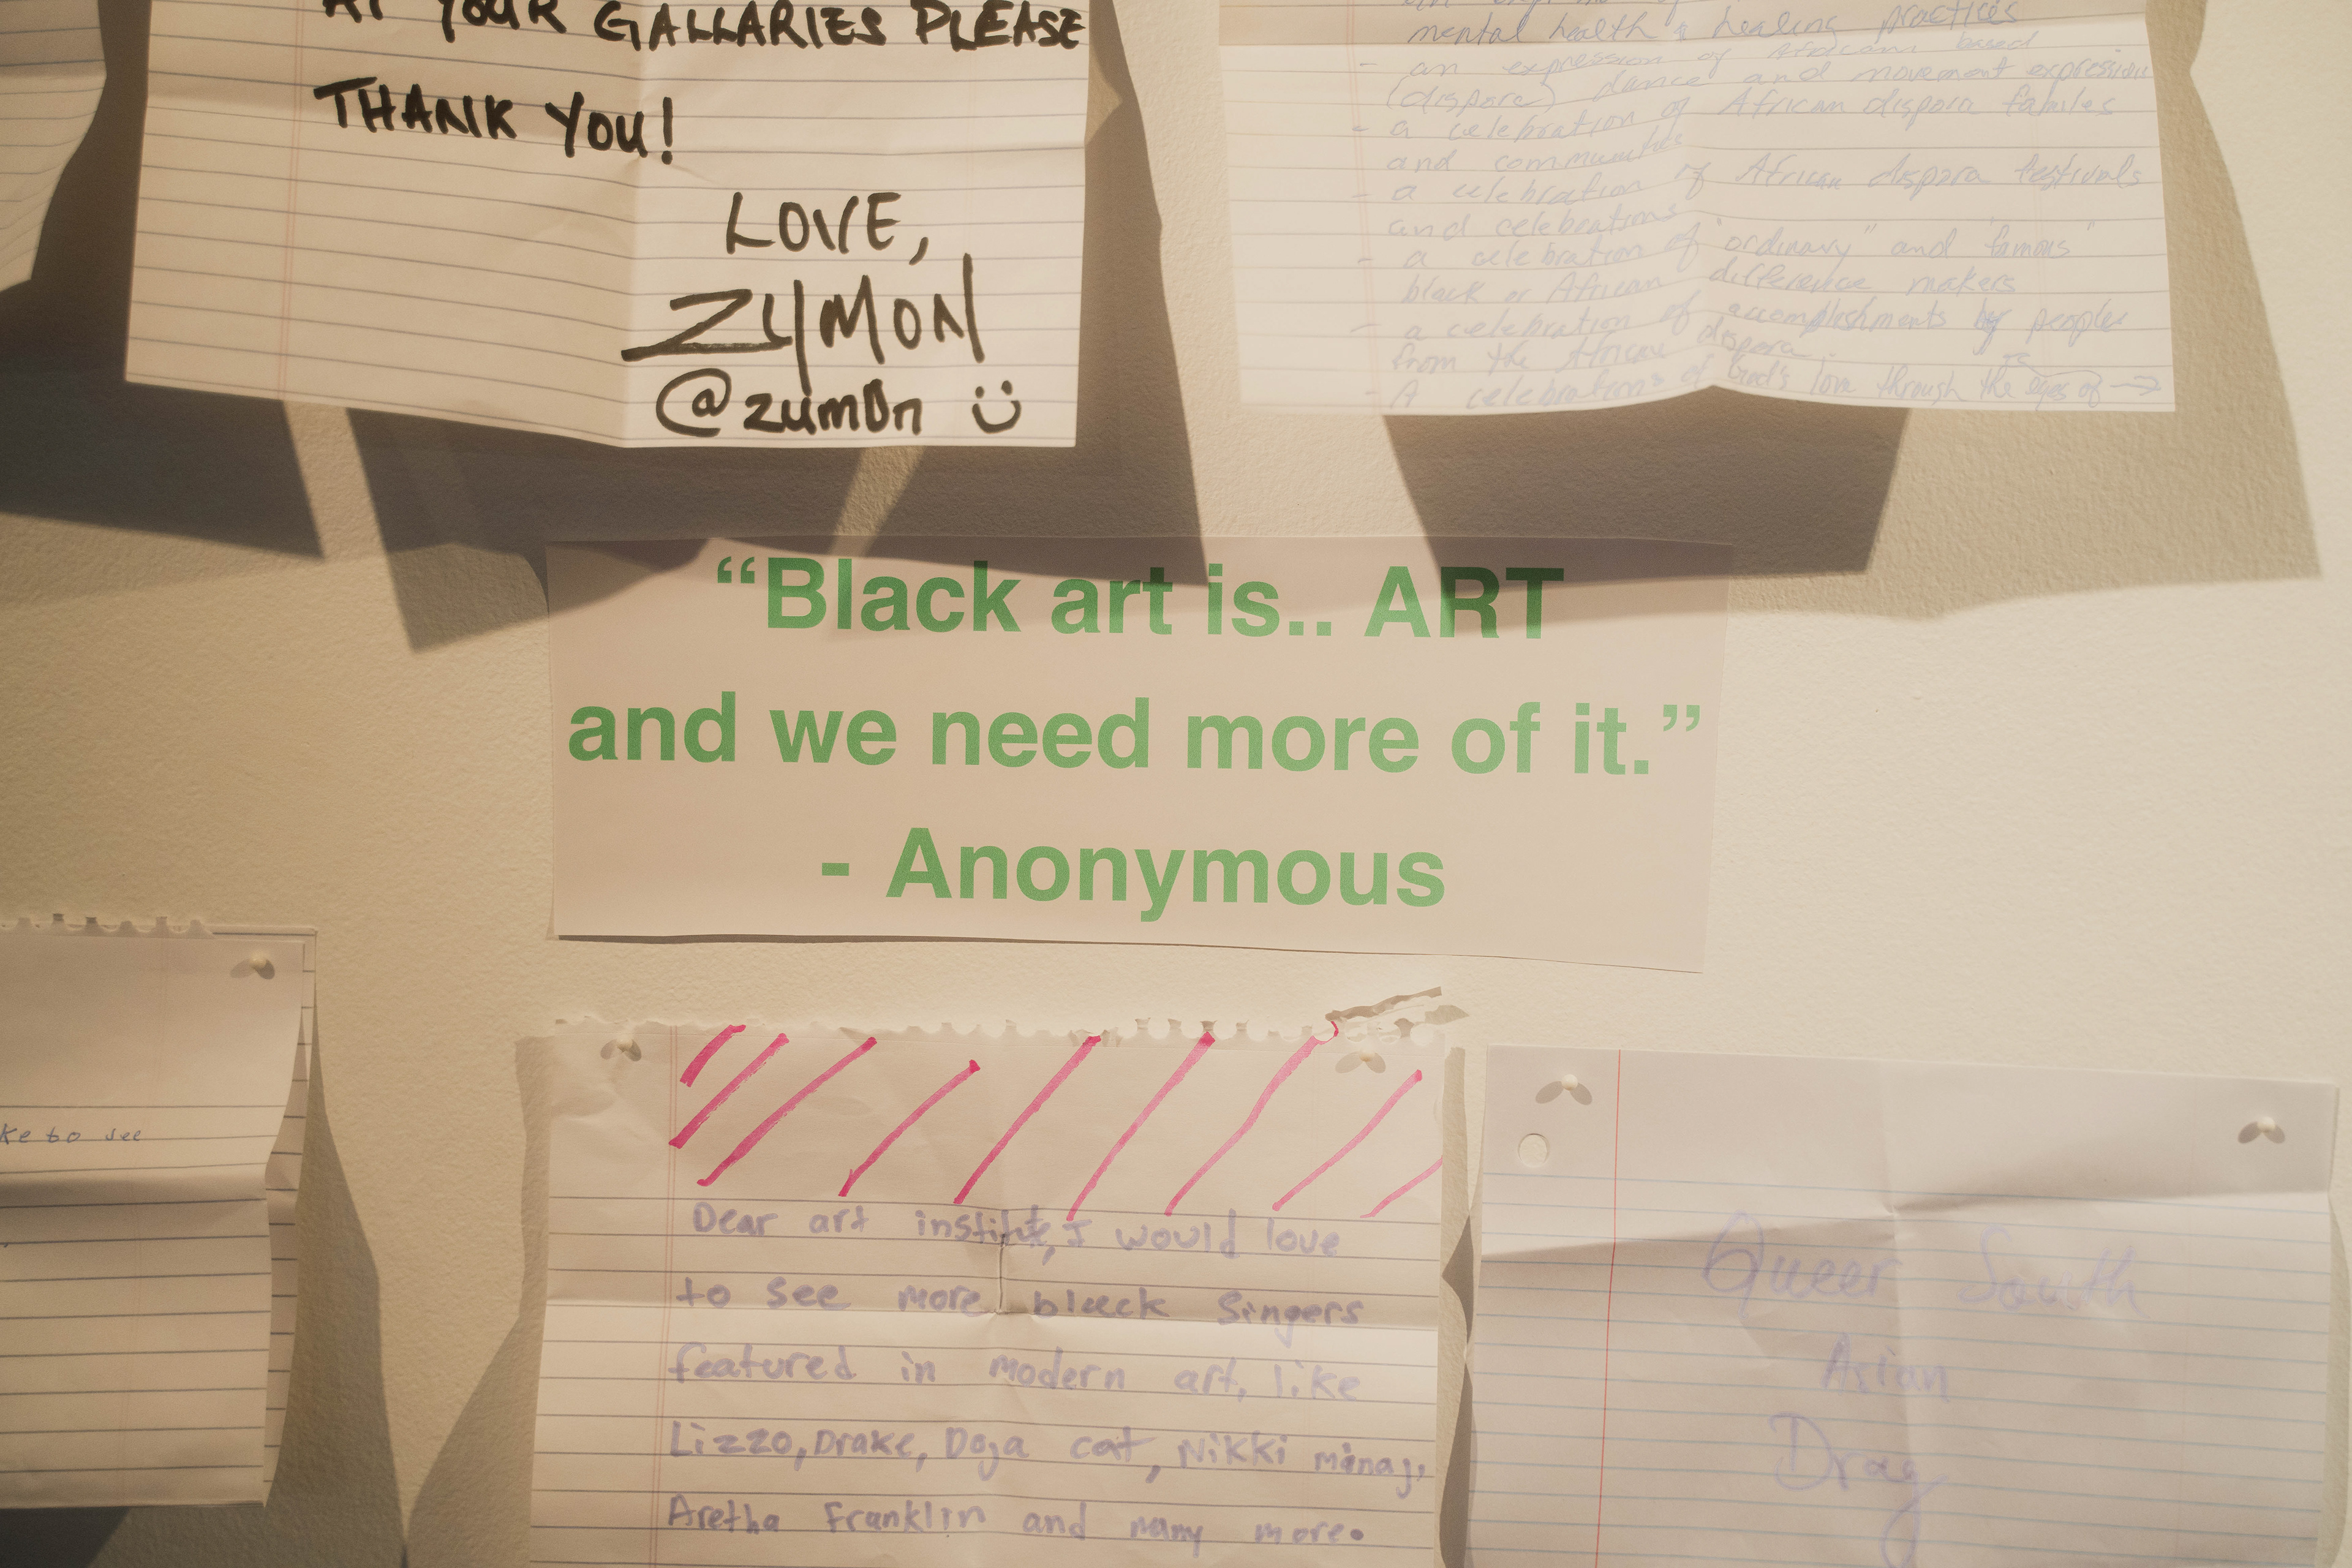 AT YOUR GALLARIES PLEASE
THANK YOU!
LOVE,
ZYMON
@zumOn
mental health & healing practices
- an expression of African based
(dispora) dance and movement expression
- a celebration of African dispora familes
and communities
- a celebration of African dispora festivals
and celebrations
- a celebration of "ordinary" and "famous"
black or African difference makers
- a celebration of accomplishments by peoples
from the African dispora.
- A celebrations of God's love through the eyes of →
“Black art is.. ART
and we need more of it.”
- Anonymous
ke to see
Dear art institute, I would love
to see more black singers
featured in modern art, like
Lizzo, Drake, Doja cat, Nikki minaj,
Aretha Franklin and many more.
Queer South
Asian
Drag